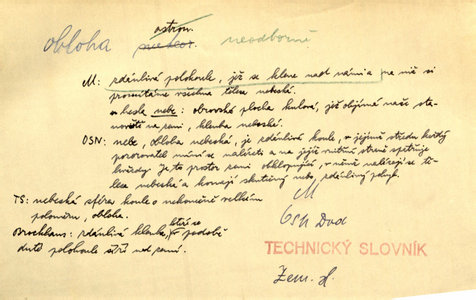 astron.
obloha meteor. neodborně
M: zdánlivá polokoule, jíž se klene nad námi a na niž si
promítáme všechna tělesa nebeská.
heslo nebe: obrovská plocha kulová, jež objímá naše sta-
noviště na zemi, klenba nebeská.
OSN: nebe, obloha nebeská, je zdánlivá koule, v jejímž středu každý
pozorovatel míní se nalézati a na jejíž vnitřní straně spatřuje
hvězdy. Je to prostor zemi obklopující, v němž nalézají se tě-
lesa nebeská a konají skutečný nebo zdánlivý pohyb.
TS: nebeská sféra koule o nekonečně velkém
poloměru, obloha.
Brockhaus: zdánlivá klenba, která se v podobě
duté polokoule nad zemí.
M
OSN Dod
TECHNICKÝ SLOVNÍK
Zem.